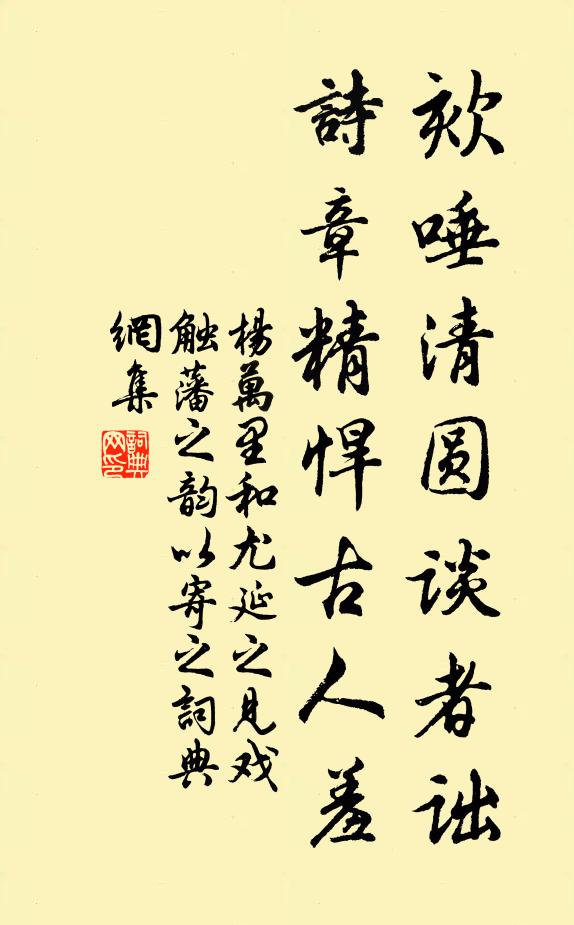 欬唾清圆谈者詘
詩章精悍古人羞
楊萬里和尤延之見戏
触藩之韵以寄之詞典
網集
詞典网印